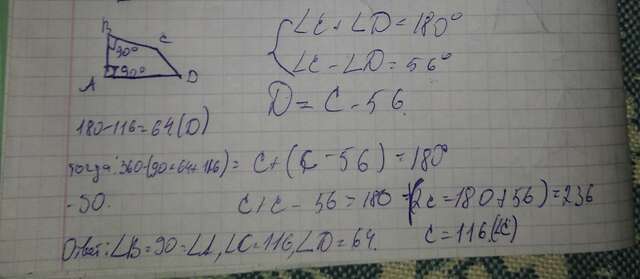 B
90°
C
A
90°
D
∠C + ∠D = 180°
∠C - ∠D = 56°
D = C - 56
180-116=64(D)
тогда: 360-(90+64+116)=
C + (C - 56) = 180°
-90.
C+C - 56 = 180
(2C = 180+56) = 236
C = 116.(∠C)
Ответ: ∠B=90=∠A, ∠C=116, ∠D=64.